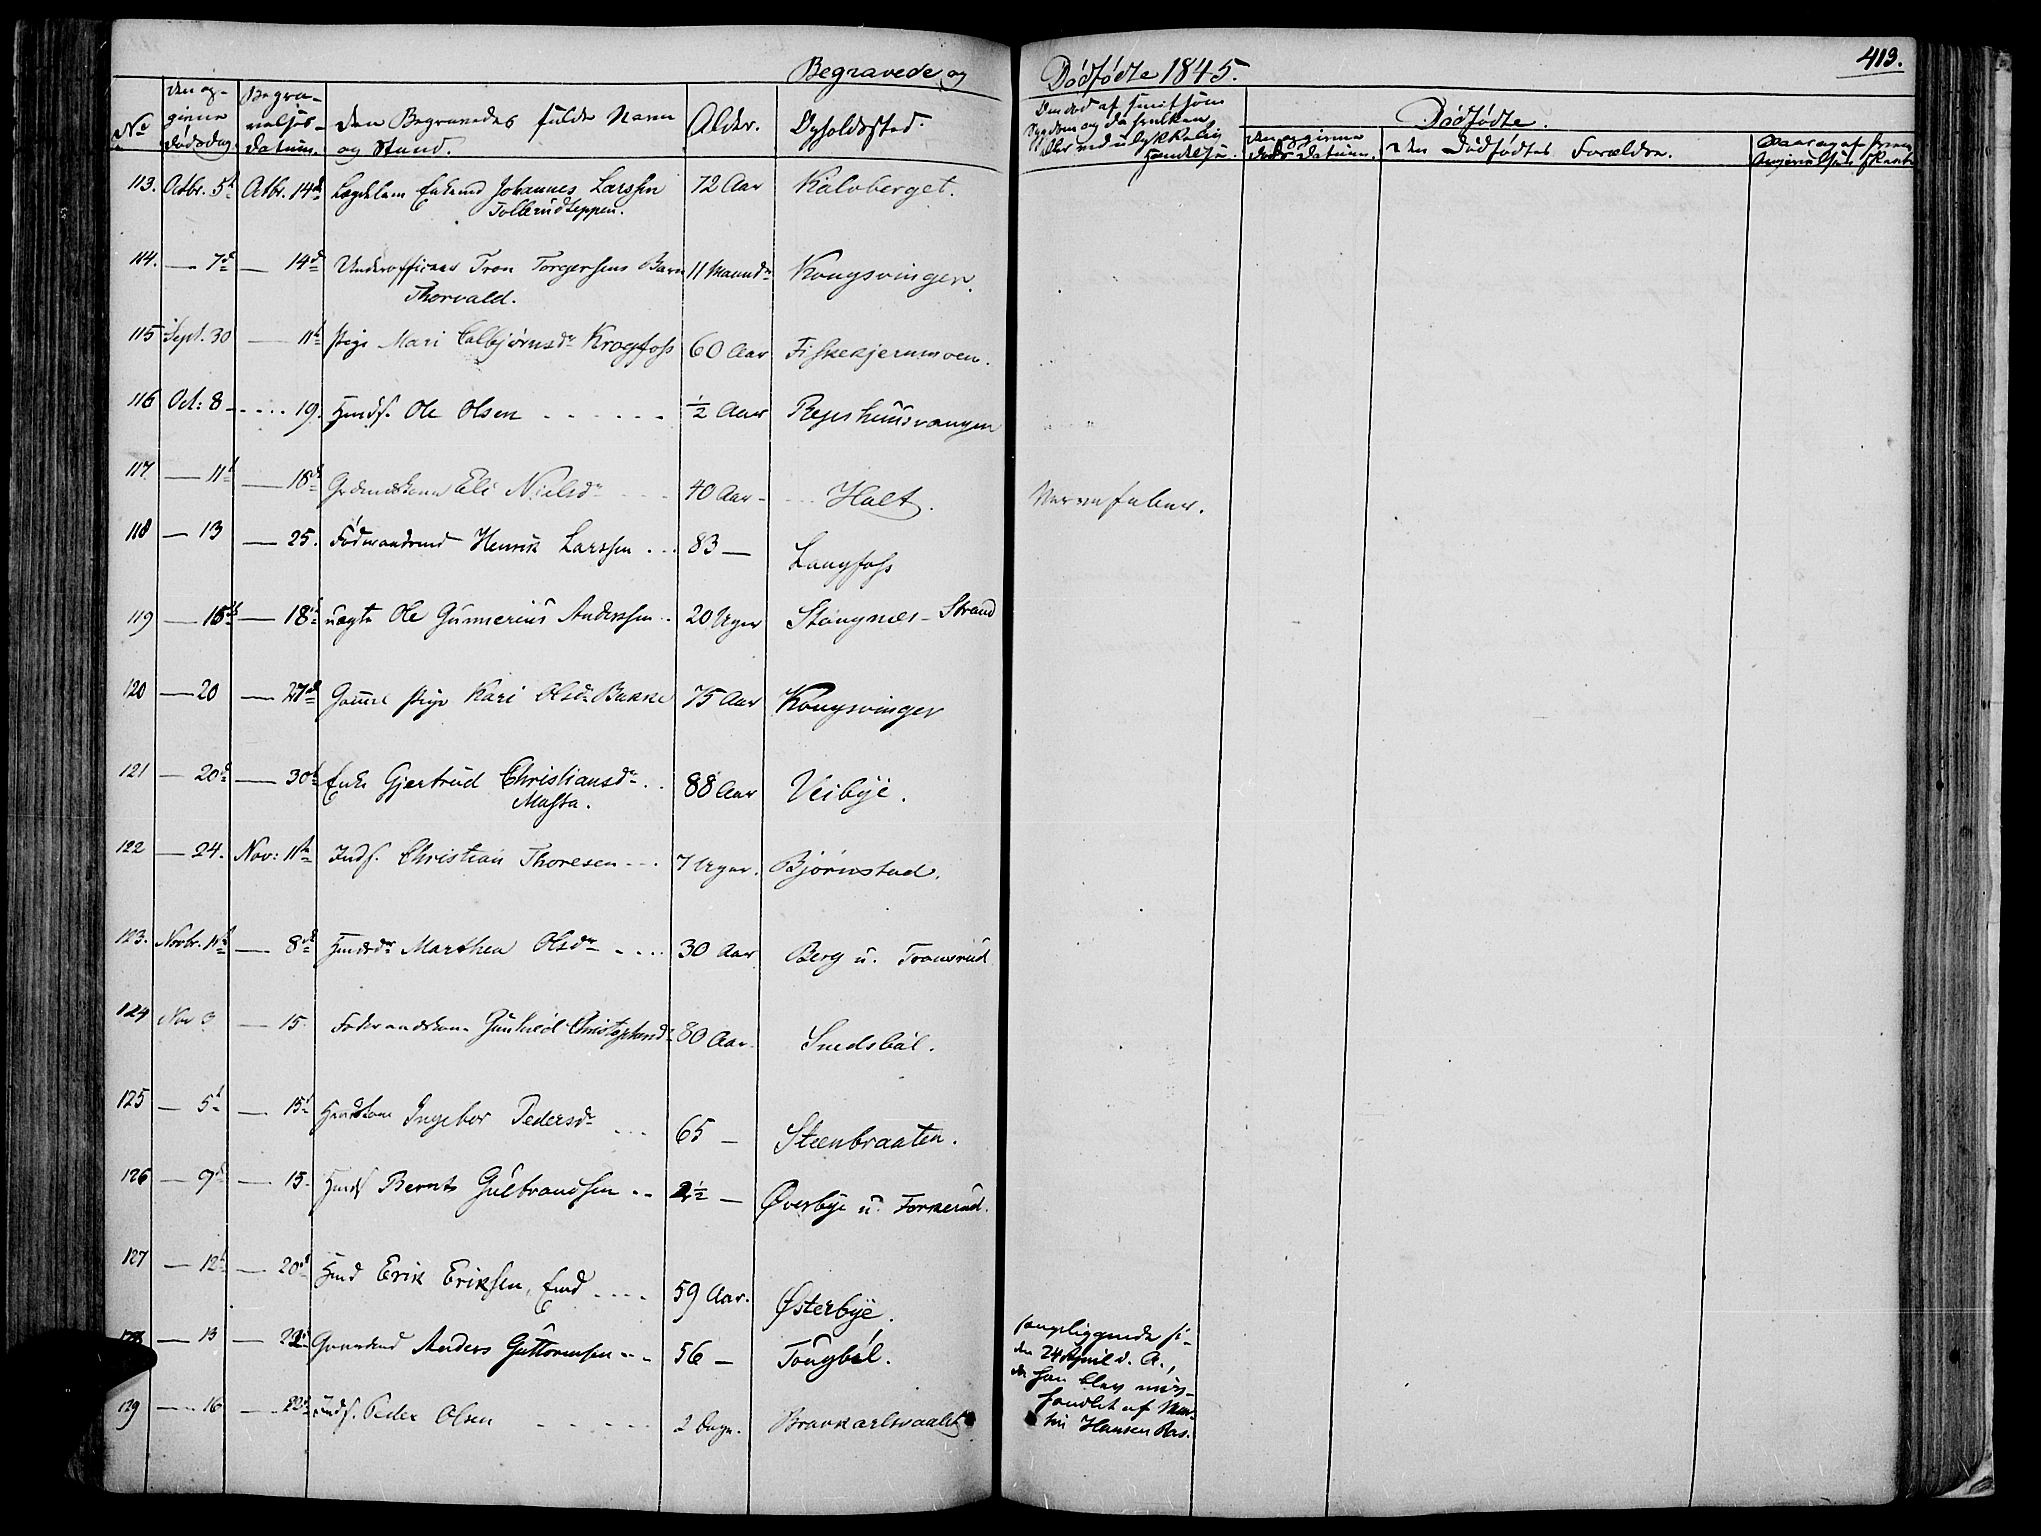 Begravede og Dødfødte 1845. 413.
No
Den og-
givne
dødsdag.
Begra-
velses-
datum.
Den Begravedes fulde Navn
og Stand.
Alder.
Opholdssted.
Dødfødte.
Den Dødfødtes Forældre.
113. Octbr. 5t Octbr. 14d Lægdslem Enkemd Johannes Larssen 72 Aar Kalvberget.
Tollerudseppen.
114. — 7d — 14d Underofficeer Tron Torgersens Barn 11 Maand. Kongsvinger.
Thorvald.
115 Sept. 30 — 11t Pige Mari Colbjørnsdr Krogfoss 60 Aar Fiskekjernmoen.
116 Oct: 8 — 19. Huusf. Ole Olsen 1/2 Aar Rejshuusvangen
117 — 11t — 18d Grdmdskone Eli Nielsdr 40 Aar Holt. Nervefeber.
118 — 13 — 25. Føderaadmd Henrik Larssen 83 — Langfoss
119 — 16 — 18d uægte Ole Gunnerius Anderssen 20 Uger Støugnæs-Strand
120 — 20 — 27d Gammel Pige Kari Olsdr Bakke 75 Aar Kongsvinger
121 — 20d — 30t Enke Gjertrud Christiansdr 88 Aar Veibye.
Masta.
122 — 24. Nov: 11t Indf. Christian Thoresen 7 Uger. Bjørnstad.
123. Novbr. 1t — 8d Huusdr Marthea Olsdr 30 Aar Berg u. Transrud
124 Nov 3 — 15. Føderaadskone Gunhild Christophersd 80 Aar Smedsbøl.
125 — 5t — 15d Huuskone Ingebor Pedersdr 65 — Steenbraaten.
126 — 9d — 15. Huusf Bernt Gulbrandsen 2 1/2 — Øverbye u. Forkerud.
127 — 12t — 20d Husmd Erik Eriksen, Emd 59 Aar. Østerbye.
128 — 13 — 22 Gaardmd Anders Guttormsen 56 — Tougbøl.
sengeliggende si-
den 24 April d. A.,
da han blev mis-
handlet af Mar-
tin Hansen Ras.
129 — 16 — 23d Indf. Peder Olsen 2 Dage. Brankarlsvaalet